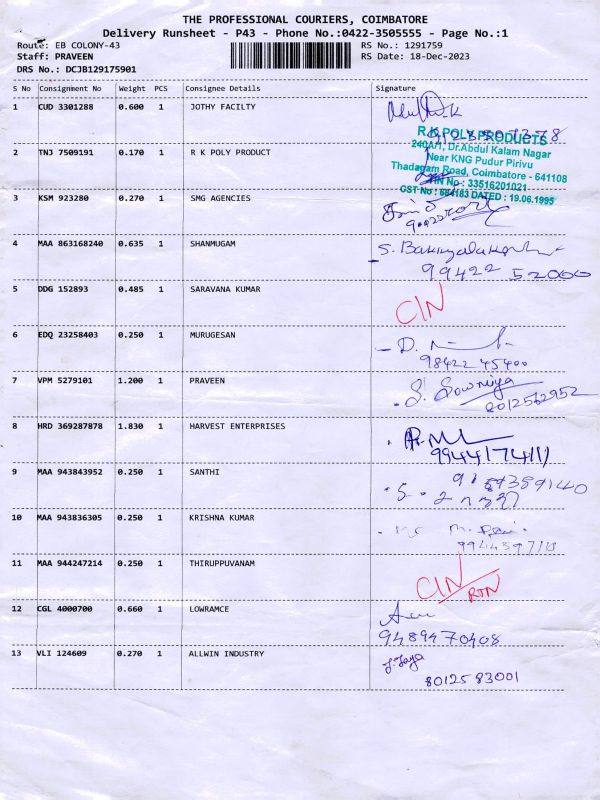 THE PROFESSIONAL COURIERS, COIMBATORE
Delivery Runsheet - P43 - Phone No.:0422-3505555 - Page No.:1
Route: EB COLONY-43 RS No.: 1291759
Staff: PRAVEEN RS Date: 18-Dec-2023
DRS No.: DCJB129175901
S No Consignment No Weight PCS Consignee Details Signature
1 CUD 3301288 0.600 1 JOTHY FACILTY
R.K POLY PRODUCTS
240A/1, Dr.Abdul Kalam Nagar
2 TNJ 7509191 0.170 1 R K POLY PRODUCT
Near KNG Pudur Pirivu
Thadagam Road, Coimbatore - 641108
TIN No : 33516201021
CST No : 684183 DATED : 19.06.1995
3 KSM 923280 0.270 1 SMG AGENCIES
4 MAA 863168240 0.635 1 SHANMUGAM
99422 52000
5 DDG 152893 0.485 1 SARAVANA KUMAR CIN
6 EDQ 23258403 0.250 1 MURUGESAN - D.
98422 45400
7 VPM 5279101 1.200 1 PRAVEEN S. Sowmiya
8012562952
8 HRD 369287878 1.830 1 HARVEST ENTERPRISES
9944174111
9 MAA 943843952 0.250 1 SANTHI
10 MAA 943836305 0.250 1 KRISHNA KUMAR
11 MAA 944247214 0.250 1 THIRUPPUVANAM CIN
RTN
12 CGL 4000700 0.660 1 LOWRAMCE
9489470408
13 VLI 124609 0.270 1 ALLWIN INDUSTRY J.Jaya
8012583001